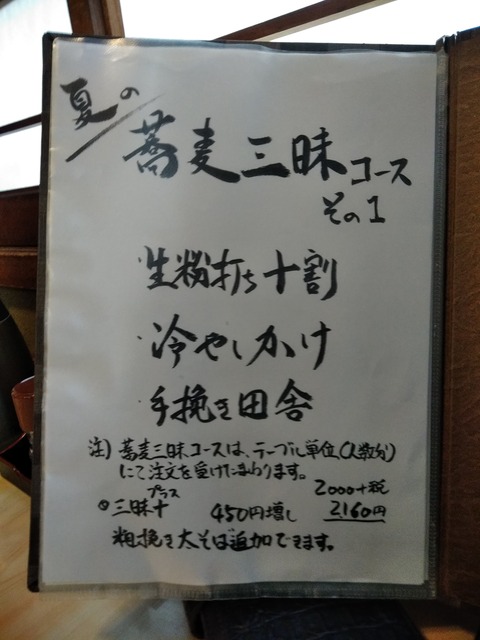 夏の
蕎麦三昧コース
その1
・生粉打ち十割
・冷やしかけ
・手挽き田舎
注)蕎麦三昧コースは、テーブル単位(人数分)
にて注文を受けたまわります。
2000+税
2160円
プラス
◎三昧+ 450円増し
粗挽き太そば追加できます。